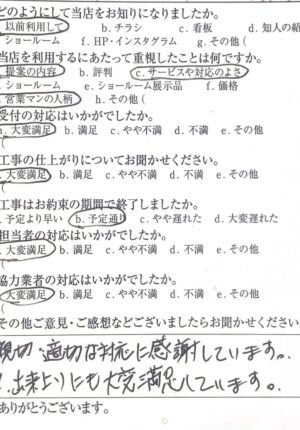 どのようにして当店をお知りになりましたか。
以前利用して b. チラシ c. 看板 d. 知人の紹
ショールーム f. HP・インスタグラム g. その他（
当店を利用するにあたって重視したことは何ですか。
提案の内容 b. 評判 c. サービスや対応のよさ
ショールーム e. ショールーム展示品 f. 価格
営業マンの人柄 h. その他（
受付の対応はいかがでしたか。
大変満足 b. 満足 c. やや不満 d. 不満 e. その他
工事の仕上がりについてお聞かせください。
大変満足 b. 満足 c. やや不満 d. 不満 e. その他
工事はお約束の期間で終了しましたか。
予定より早い b. 予定通り c. やや遅れた d. 大変遅れた
担当者の対応はいかがでしたか。
大変満足 b. 満足 c. やや不満 d. 不満 e. その他
協力業者の対応はいかがでしたか。
大変満足 b. 満足 c. やや不満 d. 不満 e. その他
その他ご意見・ご感想などございましたらお聞かせください
親切 適切な対応に感謝しています。
出来上りにも大変満足しています。
ありがとうございます。